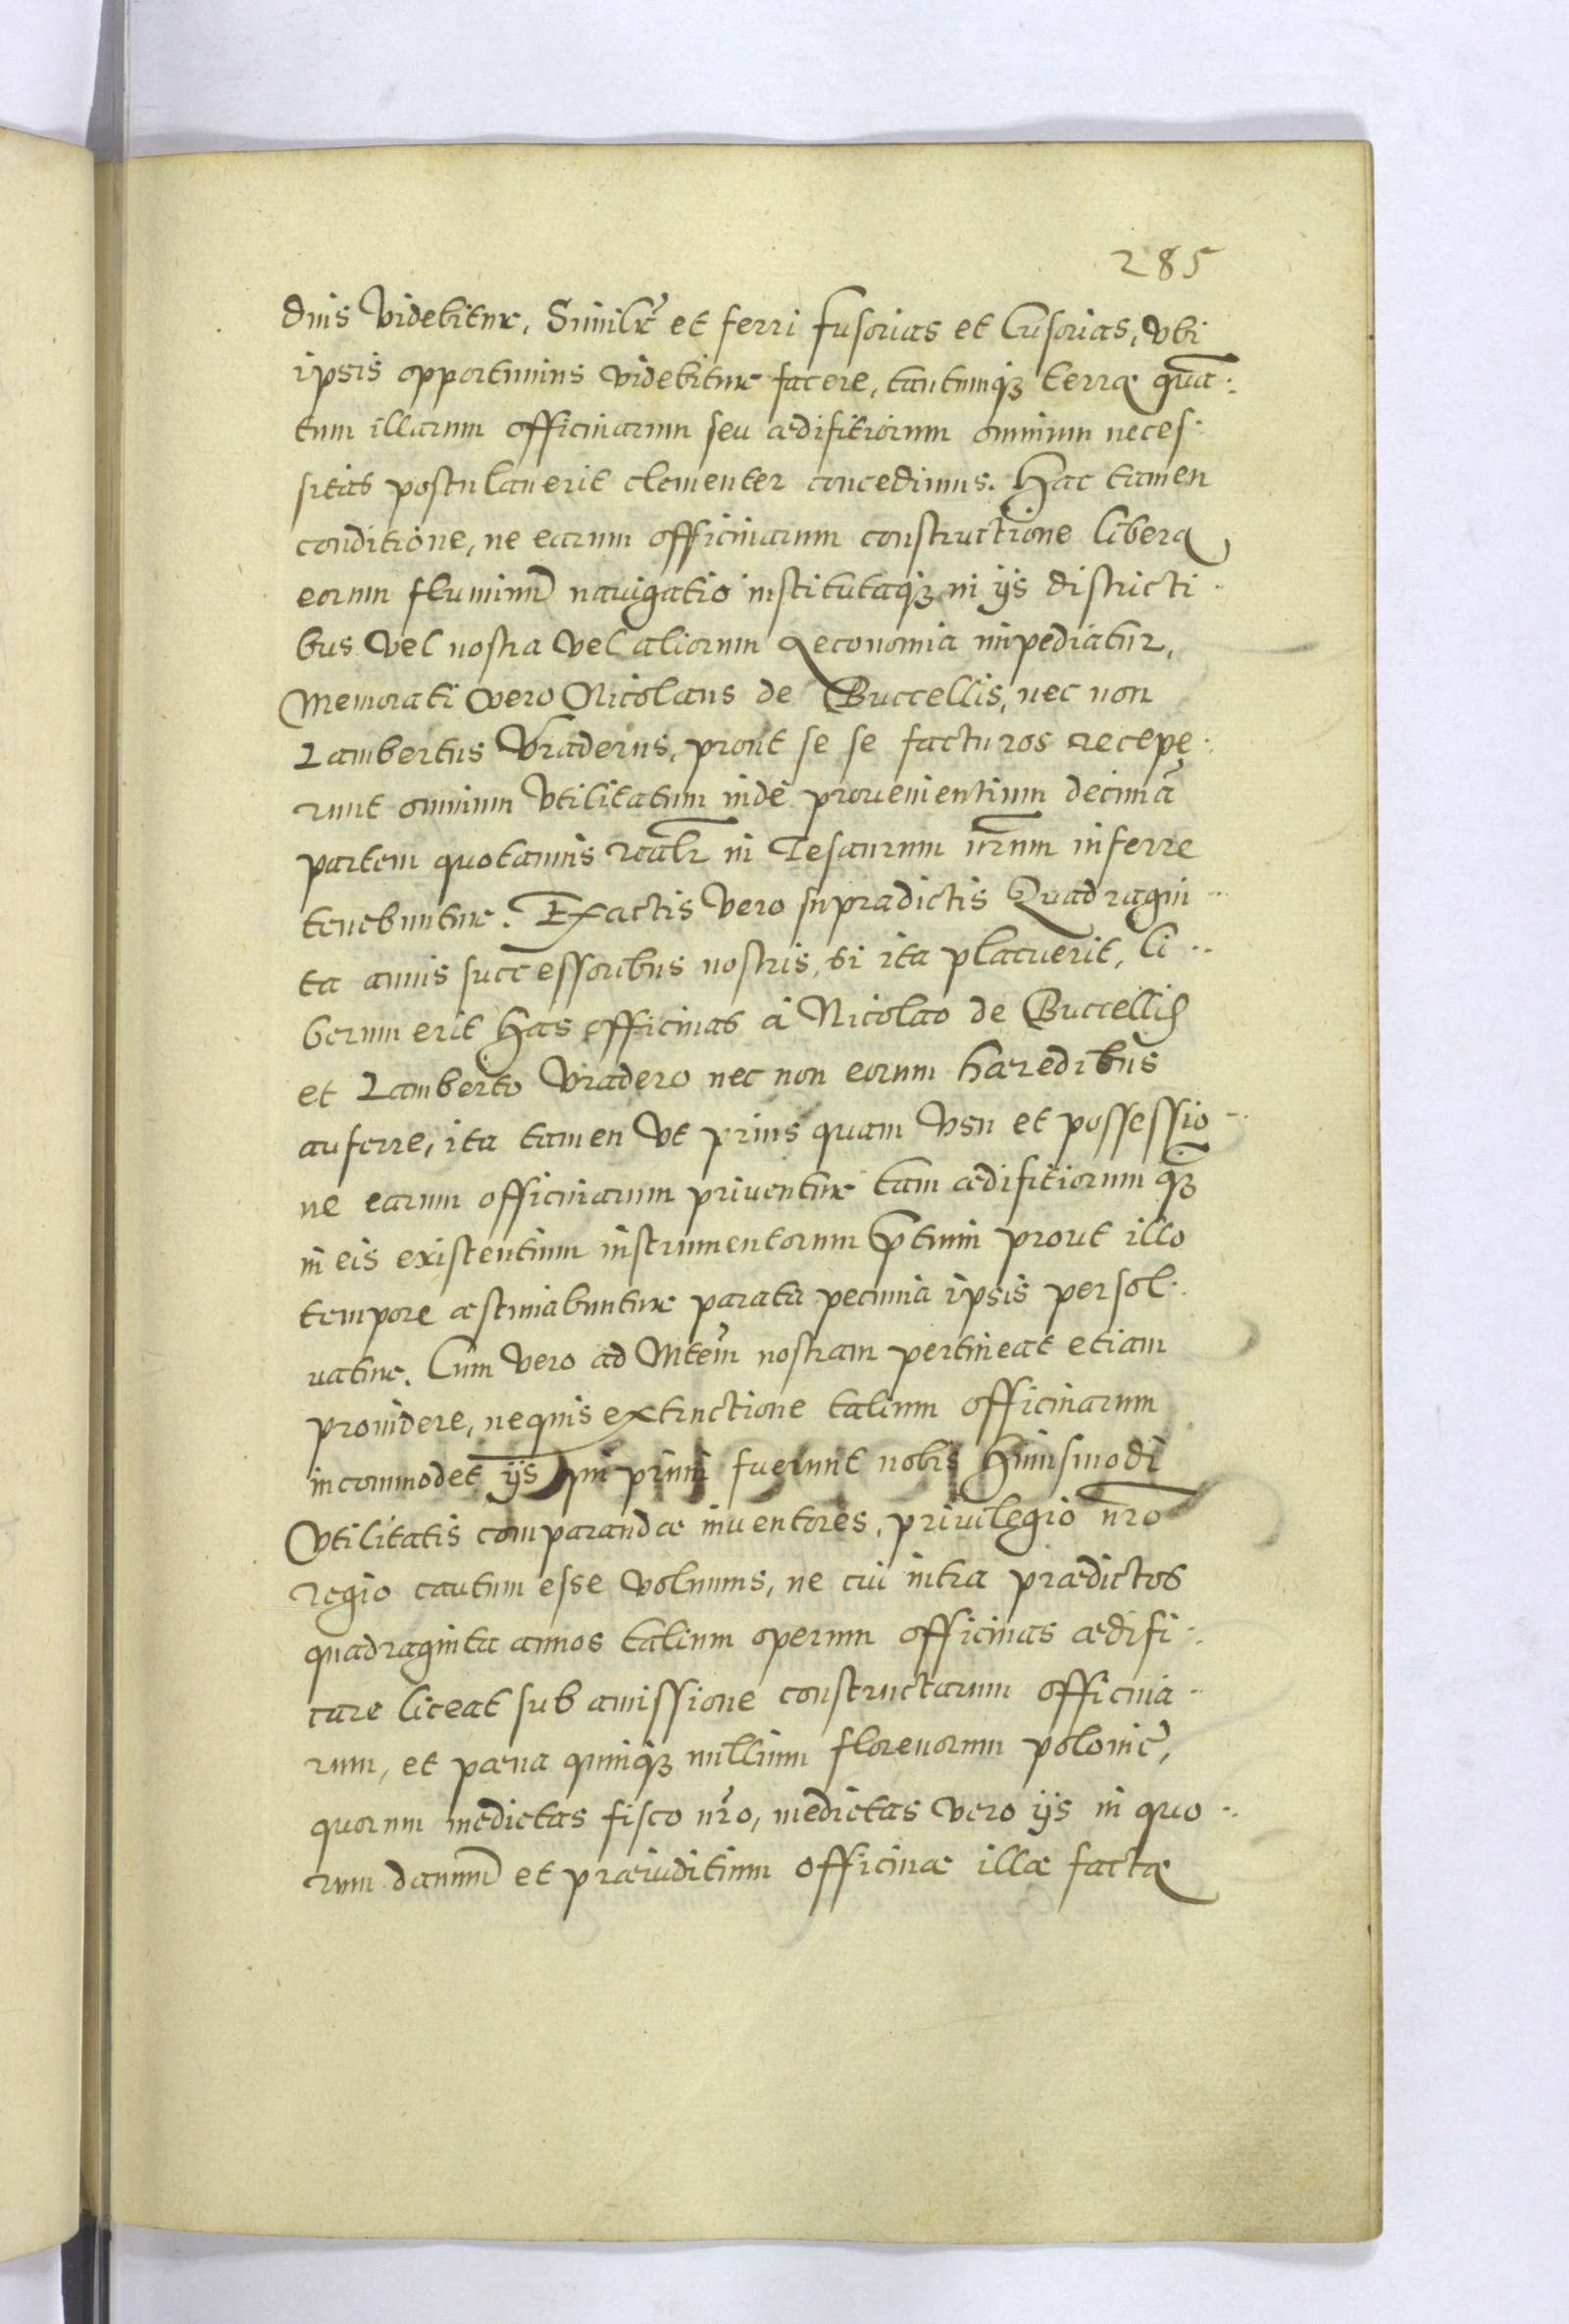 285
dnis videbitur, Similr et ferri fusorias et Cusorias, vbi
ipsis opportunius videbitur facere, tantumq₃ terræ qua:
tum illarum officinarum seu ædifitiorum omnium neces:
sitas postulauerit clementer concedimus. Hac tamen
conditione, ne earum officinarum constructione libera
eorum fluminu nauigatio institutaq₃ in ijs districti
bus vel nostra vel aliorum œconomia impediatur,
Memorati vero Nicolaus de Buccellis, nec non
Lambertus Vraderus, prout se se facturos recepe:
runt omnium vtilitatum inde prouenientium decimã
partem quotannis realr in Tesaurum nrum inferre
tenebuntur. Exactis vero supradictis Quadragin
ta annis successoribus nostris, si ita placuerit, li
berum erit has officinas à Nicolao de Buccellis
et Lamberto Vradero nec non eorum hæredibus
auferre, ita tamen vt prius quam vsu et possessio
ne earum officinarum priuentur tam ædifitiorum q₃
in eis existentium instrumentorum ptium prout illo
tempore æstimabuntur parata pecunia ipsis persol:
uatur. Cum vero ad Mtem nostram pertineat etiam
prouidere, nequis extructione talium officinarum
incommodet ijs qui primi fuerunt nobis huiusmodi
vtilitatis comparandæ inuentores, priuilegio nro
regio cautum esse volumus, ne cui intra prædictos
quadraginta annos talium operum officinas ædifi:
care liceat sub amissione constructarum officina
rum, et pæna quinq₃ millium florenorum polonic,
quorum medietas fisco nro, medietas vero ijs in quo
rum damnu et præiuditium officinæ illæ factæ